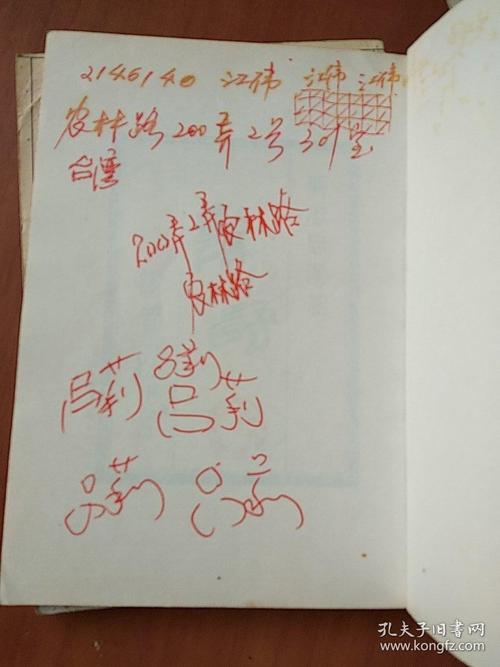 2146140 江伟 江伟 江伟
农林路200弄2号301室
台湾
200弄2弄农林路
农林路
吕莉
吕莉 吕莉
吕莉 吕莉
孔夫子旧书网
www.kongfz.com